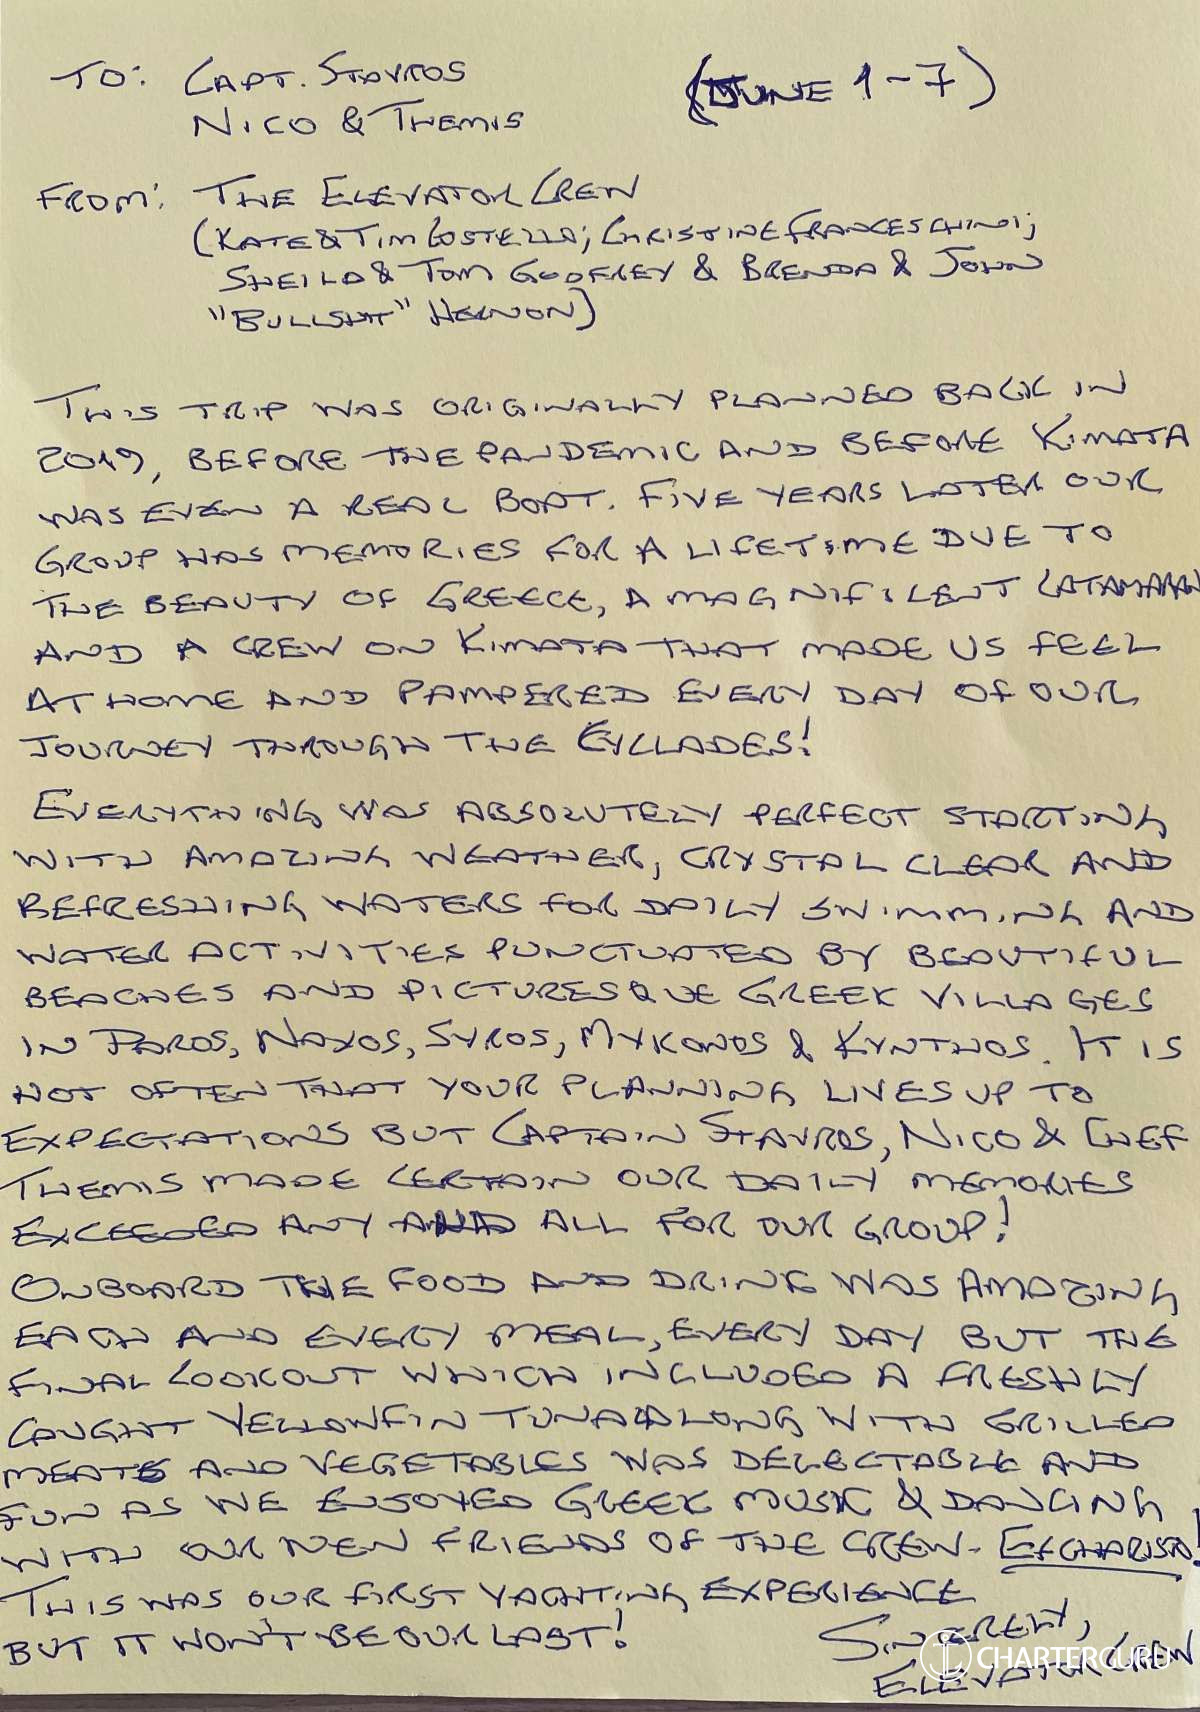 TO: CAPT. STAVROS (JUNE 1-7)
NICO & THEMIS
FROM: THE ELEVATOR CREW
(KATE & TIM COSTELLO; CHRISTINE FRANCESCHINI;
SHEILA & TOM GODFREY & BRENDA & JOHN
"BULLSHIT" HERNON)
THIS TRIP WAS ORIGINALLY PLANNED BACK IN
2019, BEFORE THE PANDEMIC AND BEFORE KIMATA
WAS EVEN A REAL BOAT. FIVE YEARS LATER OUR
GROUP HAS MEMORIES FOR A LIFETIME DUE TO
THE BEAUTY OF GREECE, A MAGNIFICENT CATAMARAN
AND A CREW ON KIMATA THAT MADE US FEEL
AT HOME AND PAMPERED EVERY DAY OF OUR
JOURNEY THROUGH THE CYCLADES!
EVERYTHING WAS ABSOLUTELY PERFECT STARTING
WITH AMAZING WEATHER, CRYSTAL CLEAR AND
REFRESHING WATERS FOR DAILY SWIMMING AND
WATER ACTIVITIES PUNCTUATED BY BEAUTIFUL
BEACHES AND PICTURESQUE GREEK VILLAGES
IN PAROS, NAXOS, SYROS, MYKONOS & KYNTHOS. IT IS
NOT OFTEN THAT YOUR PLANNING LIVES UP TO
EXPECTATIONS BUT CAPTAIN STAVROS, NICO & CHEF
THEMIS MADE CERTAIN OUR DAILY MEMORIES
EXCEEDED ANY AND ALL FOR OUR GROUP!
ONBOARD THE FOOD AND DRINK WAS AMAZING
EACH AND EVERY MEAL, EVERY DAY BUT THE
FINAL COOKOUT WHICH INCLUDED A FRESHLY
CAUGHT YELLOWFIN TUNA ALONG WITH GRILLED
MEATS AND VEGETABLES WAS DELECTABLE AND
FUN AS WE ENJOYED GREEK MUSIC & DANCING
WITH OUR NEW FRIENDS OF THE CREW- EFCHARISTO!
THIS WAS OUR FIRST YACHTING EXPERIENCE
BUT IT WON'T BE OUR LAST!
SINCERELY,
ELEVATOR CREW
CHARTERGURU